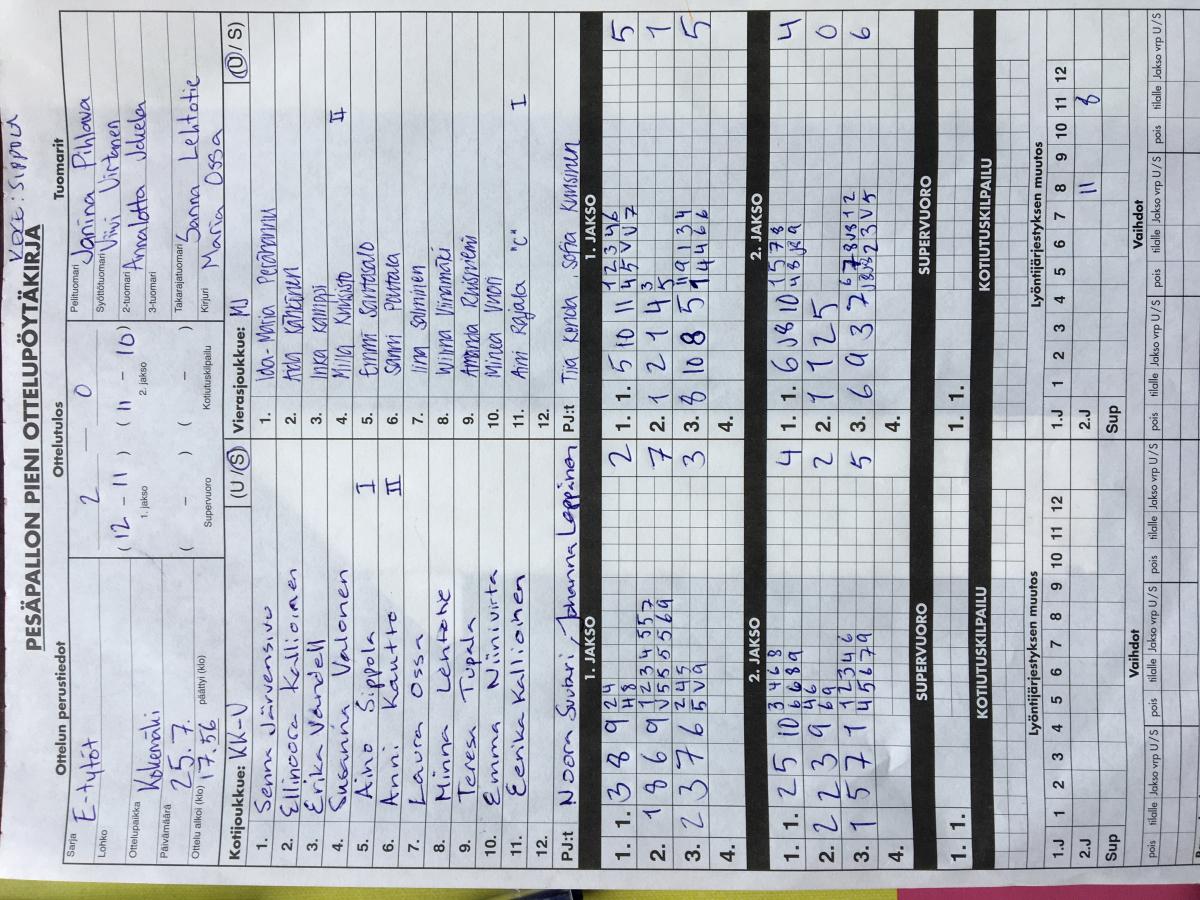 KDGE: SIPPOLA
PESÄPALLON PIENI OTTELUPÖYTÄKIRJA
Ottelun perustiedot
Sarja E-tytöt
Lohko
Ottelupaikka Kokemäki
Päivämäärä 25.7.
Ottelu alkoi (klo) 17.56 päättyi (klo)
Ottelutulos
2 – 0
( 12 – 11 ) ( 11 – 10 )
1. jakso 2. jakso
( – ) ( – )
Supervuoro Kotiutuskilpailu
Tuomarit
Pelituomari Janina Pihlava
Syöttötuomari Viivi Virtanen
2-tuomari Annalotta Jokela
3-tuomari
Takarajatuomari Sanna Lehtotie
Kirjuri Maria Ossa
Kotijoukkue: KK-V (U / S)
1. Senna Järvensivu
2. Ellinoora Kallioinen
3. Erika Vandell
4. Susanna Valonen
5. Aino Sippola I
6. Anni Kautto II
7. Laura Ossa
8. Minna Lehtotie
9. Teresa Tupala
10. Emma Niinivirta
11. Eerika Kallioinen
12.
PJ:t Noora Suutari, Johanna Leppänen
Vierasjoukkue: MJ (U / S)
1. Ida-Maria Perämnu
2. Ada
3. Inka
4. Milla Kunnisto II
5. Emmi Santasalo
6. Sanni
7. Iina Salminen
8. Wilma Viinamäki
9. Amanda
10. Minea Vuori
11. Aini Rajala "C" I
12.
PJ:t Tiia , Sofia
1. JAKSO
1. 1. 3 8 9 2 4 2
4 8
2. 1 8 6 9 1 2 3 4 5 5 7 7
V 5 5 5 5 6 9
3. 2 3 7 6 2 4 5 3
5 V 9
4.
1. JAKSO
1. 1. 5 10 11 1 2 3 4 6 5
4 5 V V 7
2. 1 2 1 4 3 1
5
3. 8 10 8 5 11 9 1 3 4 5
1 4 4 6 6
4.
2. JAKSO
1. 1. 2 5 10 3 4 6 8 4
6 6 8 9
2. 2 3 9 4 6 2
6 9
3. 1 5 7 1 1 2 3 4 6 5
4 5 6 7 9
4.
2. JAKSO
1. 1. 6 8 10 1 5 7 8 4
4 8 8 9
2. 1 1 2 5 0
3. 6 9 3 7 6
4.
SUPERVUORO
1. 1.
SUPERVUORO
1. 1.
KOTIUTUSKILPAILU
KOTIUTUSKILPAILU
Lyöntijärjestyksen muutos
1.J 1 2 3 4 5 6 7 8 9 10 11 12
2.J
Sup
Lyöntijärjestyksen muutos
1.J 1 2 3 4 5 6 7 8 9 10 11 12
2.J 11 8
Sup
Vaihdot
pois tilalle Jakso vrp U / S pois tilalle Jakso vrp U / S pois tilalle Jakso vrp U / S
Vaihdot
pois tilalle Jakso vrp U / S pois tilalle Jakso vrp U / S pois tilalle Jakso vrp U / S